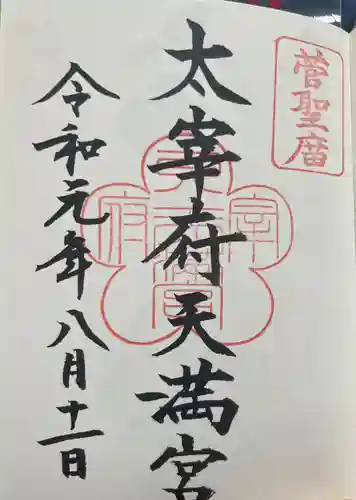 菅聖庿
太宰府天満宮
令和元年八月十一日